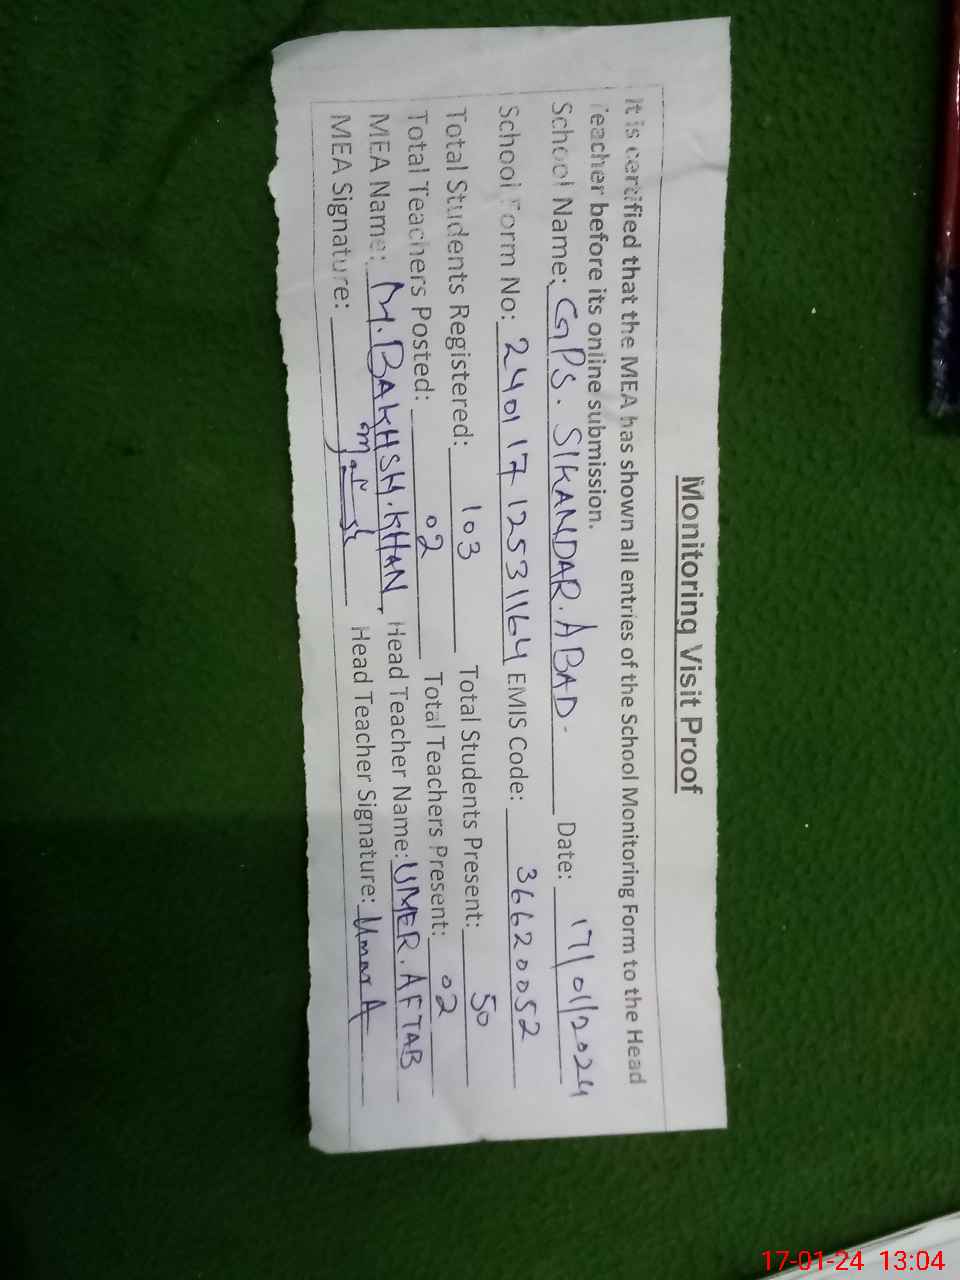 Monitoring Visit Proof
It is certified that the MEA has shown all entries of the School Monitoring Form to the Head
Teacher before its online submission.
School Name: GPS. SIKANDAR. ABAD- Date: 17/01/2024
School Form No: 24011712531164 EMIS Code: 36620052
Total Students Registered: 103 Total Students Present: 50
Total Teachers Posted: 02 Total Teachers Present: 02
MEA Name: M. BAKHSH. KHAN Head Teacher Name: UMER. AFTAB
MEA Signature: Head Teacher Signature: Umar A
17-01-24 13:04